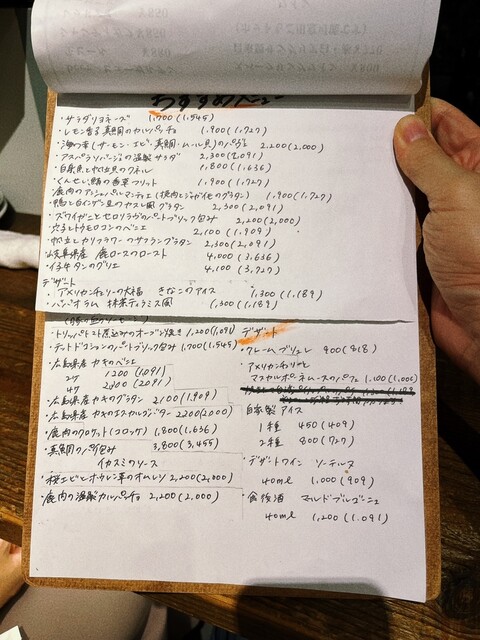 おすすめメニュー
・サラダリヨネーズ 1,700 (1,545)
・レモン香る真鯛のカルパッチョ 1,900 (1,727)
・海の幸(サーモン・エビ・真鯛・ムール貝)のパイ 2,200 (2,000)
・アスパラソバージュの温製サラダ 2,300 (2,091)
・白身魚と帆立貝のクネル 1,800 (1,636)
・くんせい鯖の香草フリット 1,900 (1,727)
鹿肉のアッシェパルマンティエ(挽肉とジャガイモのグラタン) 1,900 (1,727)
・鴨と白インゲン豆のカスレ風グラタン 2,300 (2,091)
・ズワイガニとセロリラヴのパートブリック包み 2,200 (2,000)
穴子とトウモロコシのベニエ 2,100 (1,909)
・帆立とカリフラワーのサフラングラタン 2,300 (2,091)
県産 鹿ロースのロースト 4,000 (3,636)
・仔牛タンのグリエ 4,100 (3,727)
デザート
・アメリカンチェリーの大福 きなこのアイス 1,300 (1,189)
・パン・オ ラム 抹茶ティラミス風 1,300 (1,189)
・トリッパトマト煮込みのオーブン焼き 1,200 (1,091)
・テットドコションのパートブリック包み 1,700 (1,545)
・広島県産 カキのベニエ
2ケ 1200 (1,091)
4ケ 2,300 (2,091)
広島県産カキのグラタン 2,100 (1,909)
・広島県産 カキのエスカルゴバター 2200 (2000)
・鹿肉のクロケット(コロッケ) 1,800 (1,636)
・真鯛のパイ包み 3,800 (3,455)
イカスミのソース
・桜エビとホウレン草のオムレツ 2,200 (2,000)
・鹿肉の温製カルパッチョ 2,200 (2,000)
デザート
・クレームブリュレ 900 (818)
・アメリカンチェリーと
マスカルポーネムースのパフェ 1,100 (1,000)
自家製アイス
1種 450 (409)
2種 800 (727)
・デザートワイン ソーテルヌ
40ml 1,000 (909)
・食後酒 マールドブルゴーニュ
40ml 1,200 (1,091)